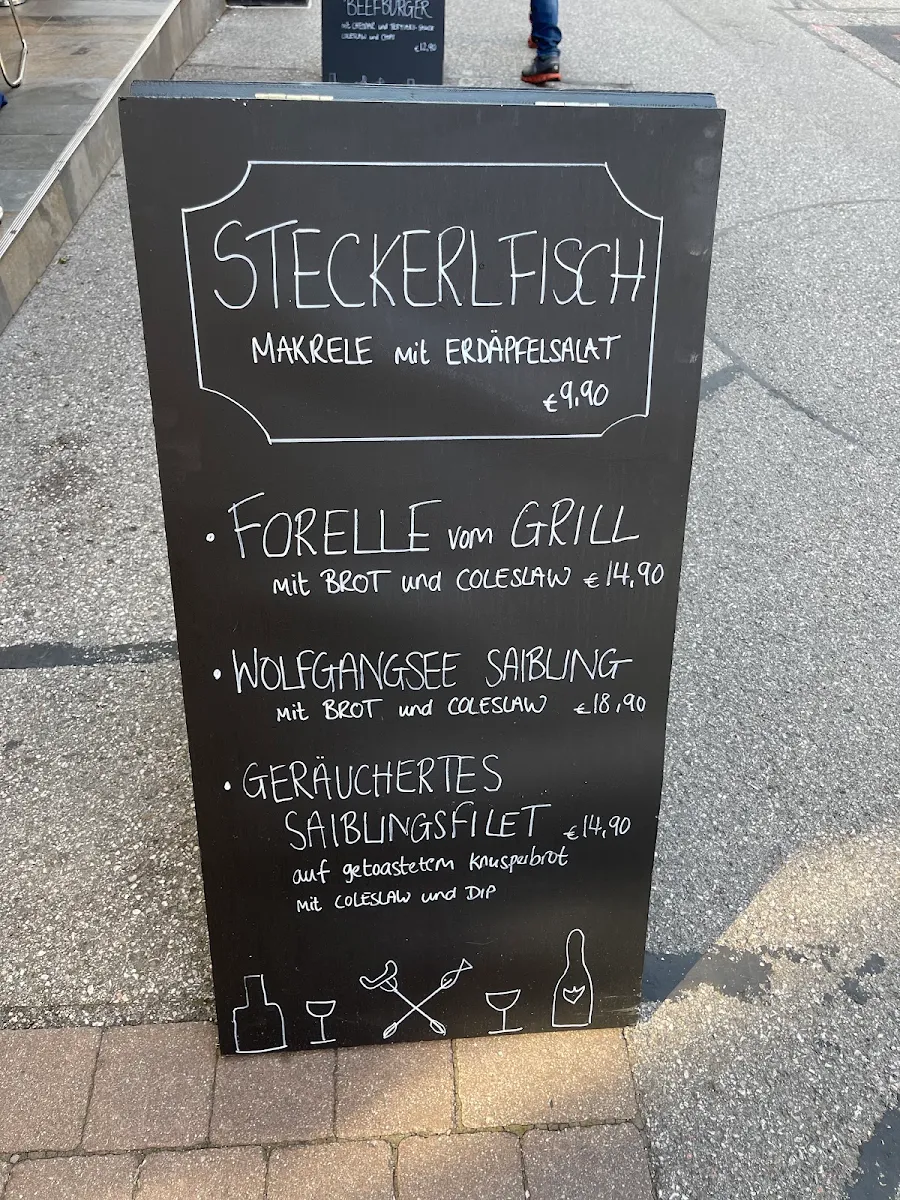 BEEFBURGER
mit CHEDDAR und
COLESLAW und CHIPS
€12,90
STECKERLFISCH
MAKRELE mit ERDÄPFELSALAT
€9,90
• FORELLE vom GRILL
mit BROT und COLESLAW €14,90
• WOLFGANGSEE SAIBLING
mit BROT und COLESLAW €18,90
• GERÄUCHERTES
SAIBLINGSFILET €14,90
auf getoastetem Knusperbrot
mit COLESLAW und DIP